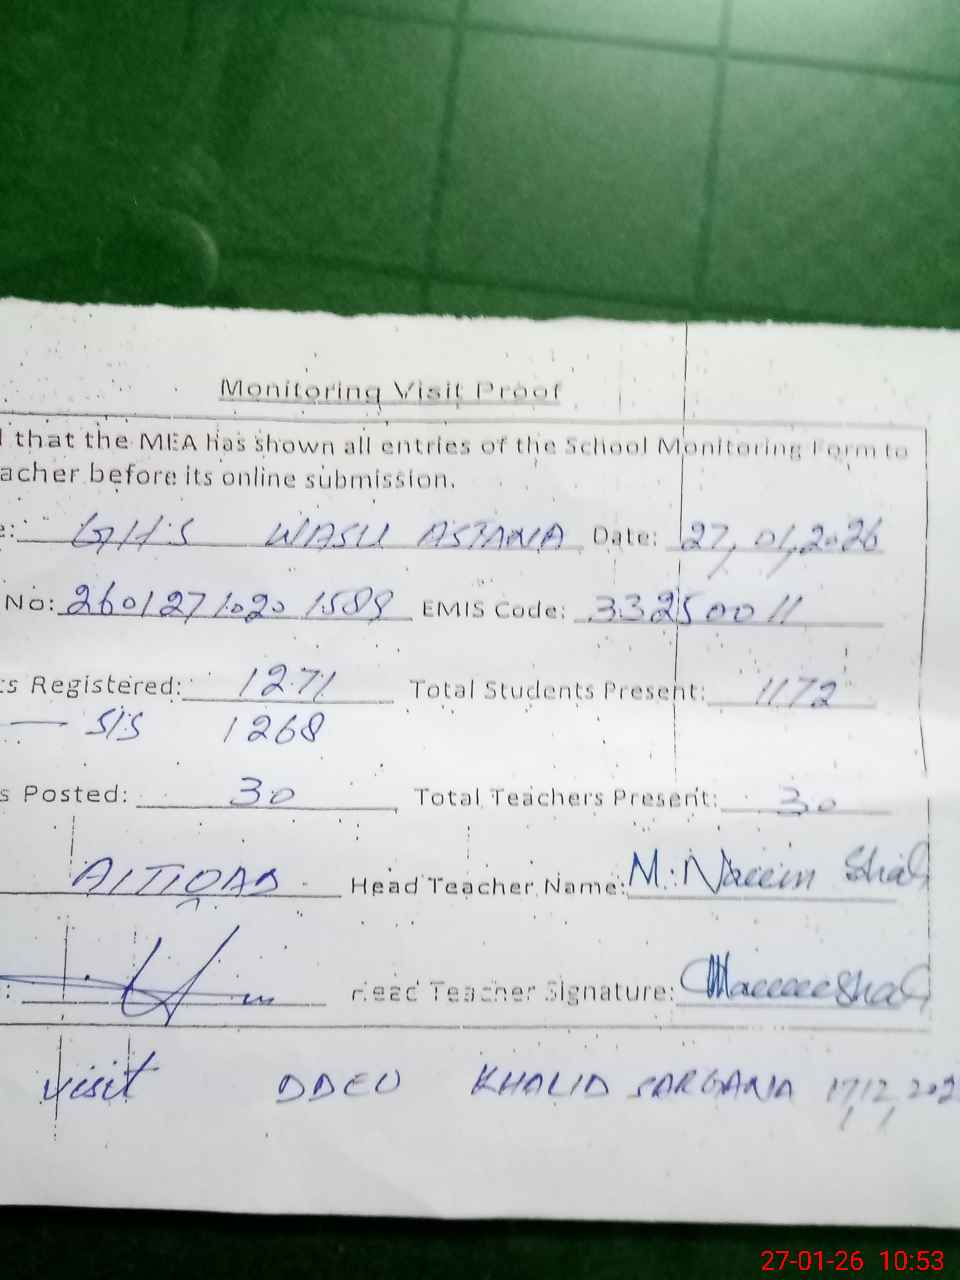 Monitoring Visit Proof
that the MEA has shown all entries of the School Monitoring Form to
acher before its online submission.
e: GHS WASU ASTANA Date: 27,01,2026
No: 2601271020 1589 EMIS Code: 33250011
s Registered: 1271 Total Students Present: 1172
SIS 1268
s Posted: 30 Total Teachers Present: 30
Head Teacher Name: M. Naeem Shah
Head Teacher Signature:
visit DDEO KHALID SARGANA 17,12,202
27-01-26 10:53